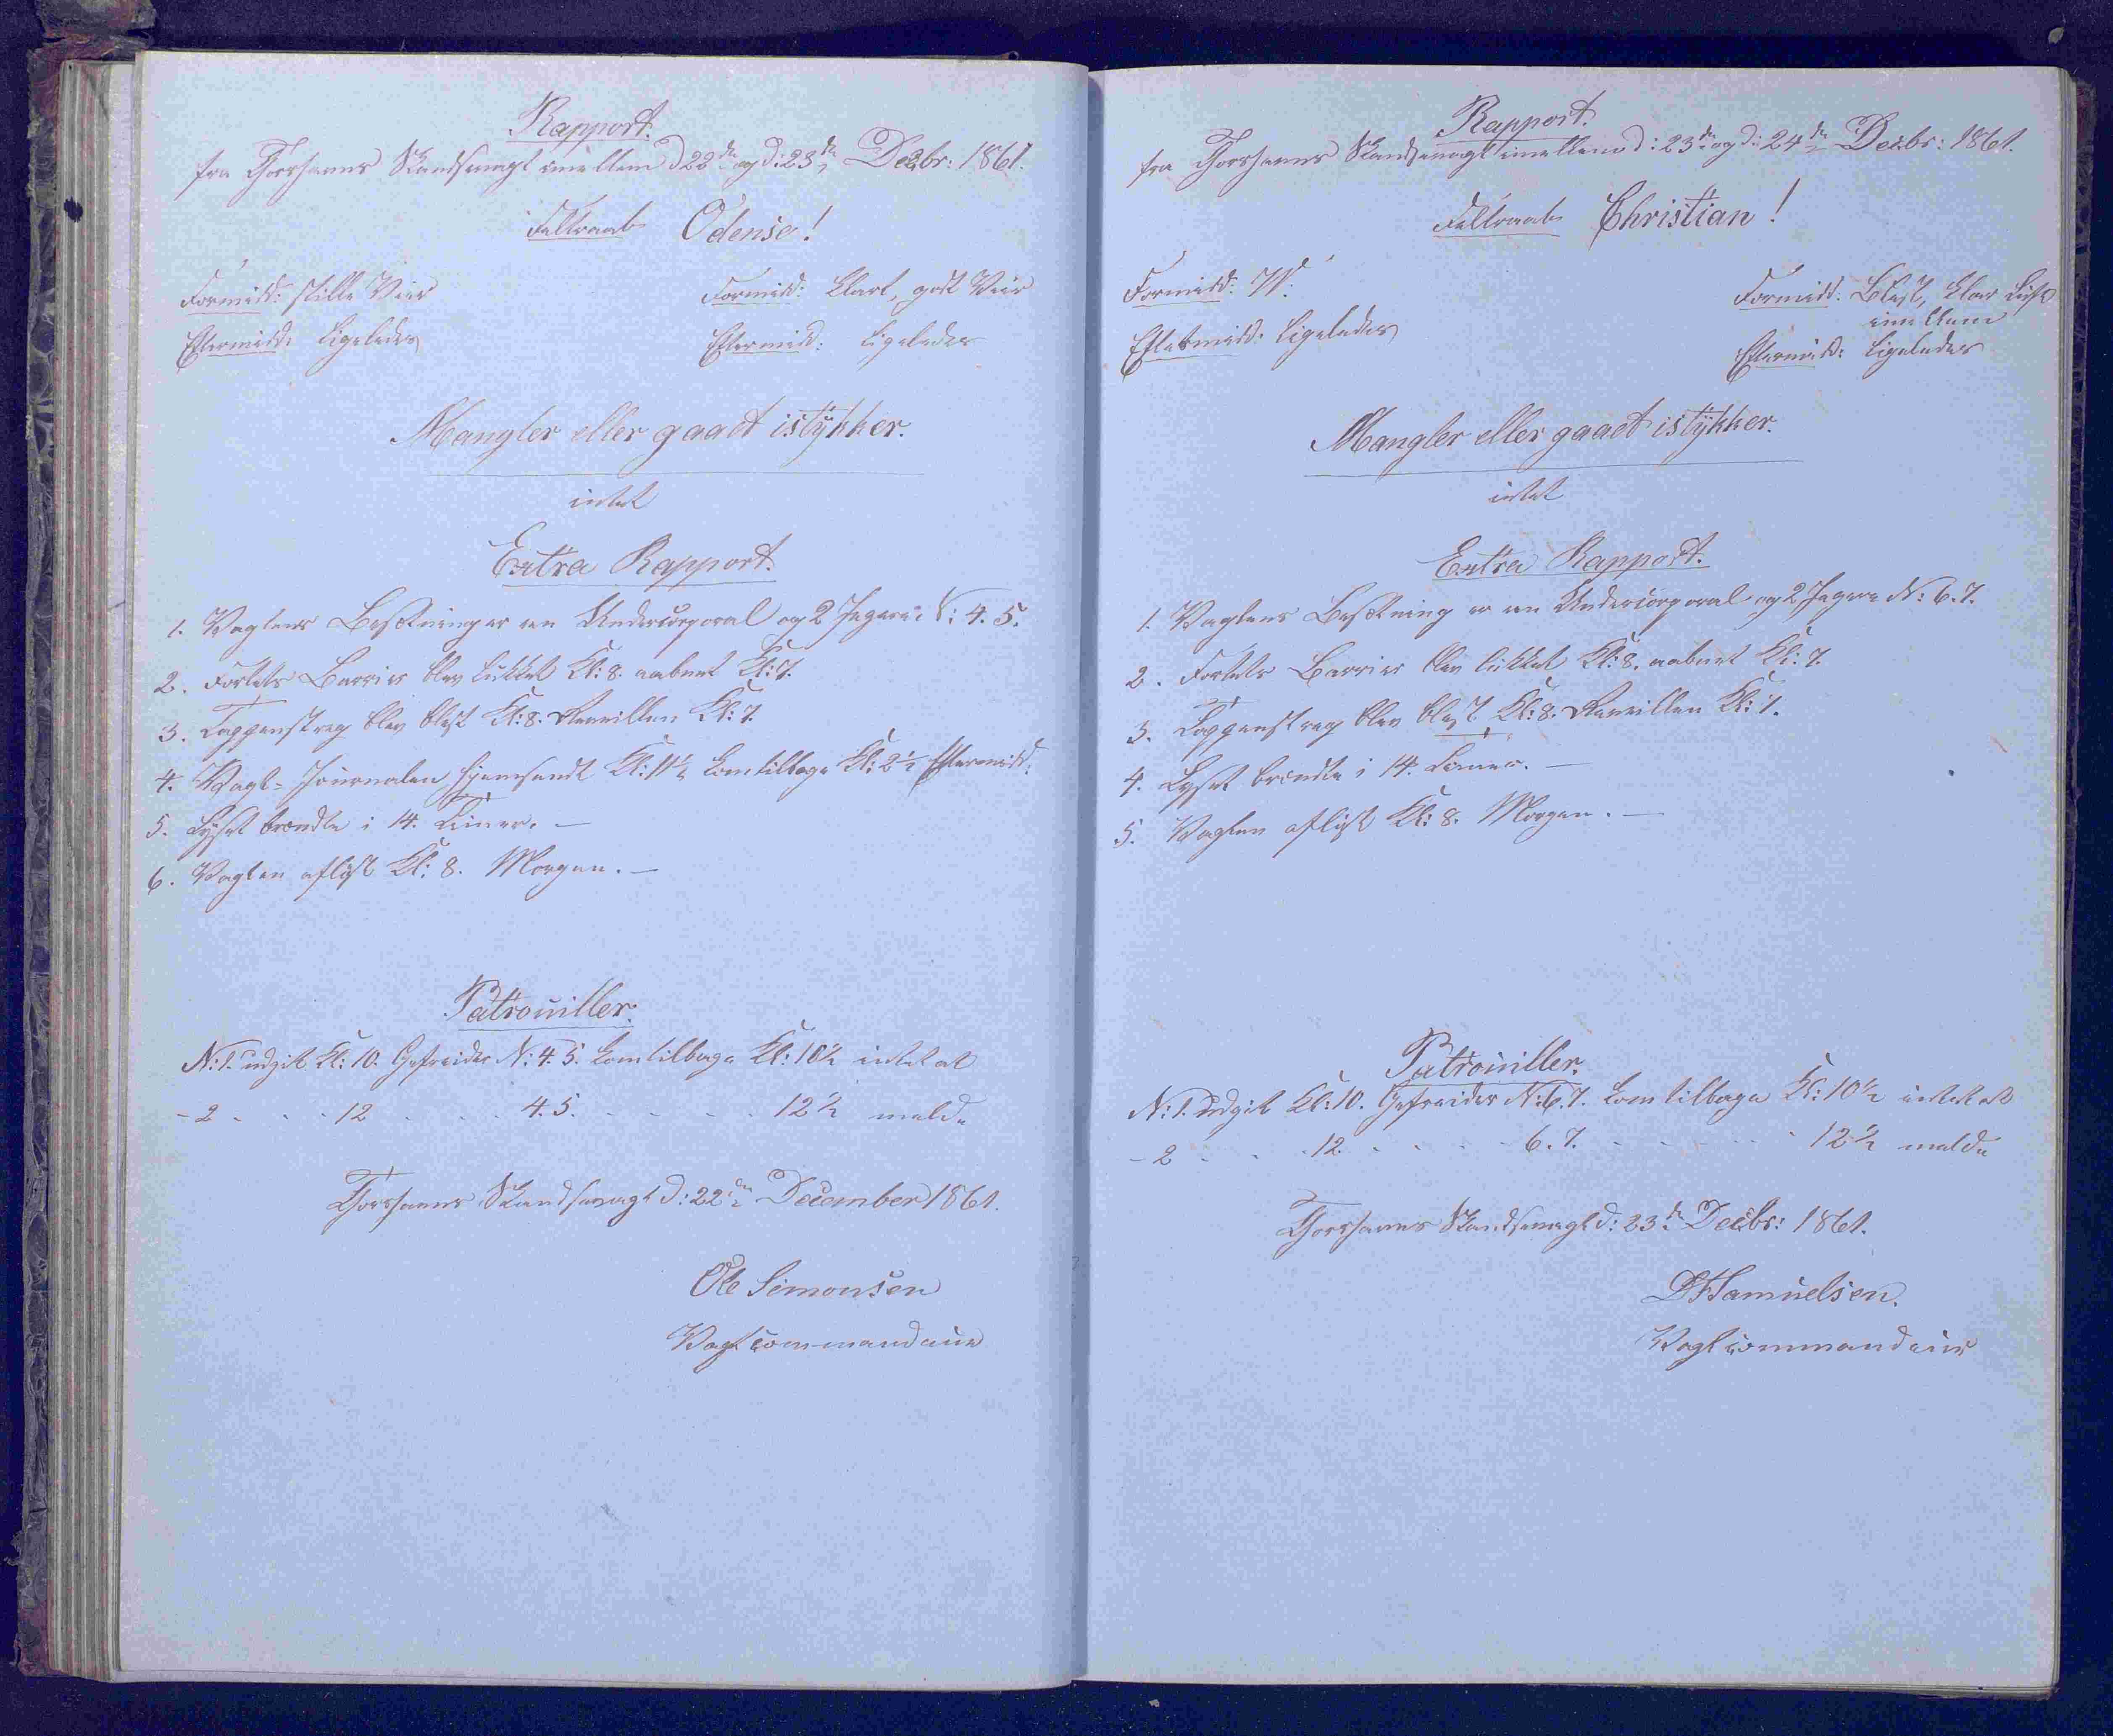 Rapport.
fra Thorshavns Skandsevagt imellem d 22de og d: 23de Decbr: 1861.
Feltraab Odense!
Formidd: stille Veir
Eftermidd: Ligeledes
Formidd: klart, godt Veir
Eftermidd: ligeledes
Mangler eller gaaet istÿkker.
intet
Extra Rapport.
1. Vagtens Besætning er en Undercorporal og 2 Jegere N: 4. 5.
2. Fortets Barrier blev lukket Kl: 8. aabnet Kl: 7.
3. Tappenstreg blev blæst Kl: 8. Reveillen Kl: 7.
4. Vagt=Journalen hjemsendt Kl: 11½ kom tilbage Kl: 2½ Eftermidd:
5. Lyset brændte i 14. Timer. —
6. Vagten afløst Kl: 8. Morgen. —
Patrouiller.
N: 1. udgik Kl: 10. Gefreider N: 4. 5. kom tilbage Kl: 10½ intet at
- 2 - - - 12 - - - 4. 5. - - - - 12½ melde
Thorshavns Skandsevagt d: 22de December 1861.
Ole Simonsen
Vagtcommandeur
Rapport.
fra Thorshavns Skandsevagt imellem d: 23de og d: 24de Decbr: 1861.
Feltraab Christian!
Formidd:
Eftermidd: ligeledes
Formidd: Blæst, klar Luft
imellem
Eftermidd: ligeledes
Mangler eller gaaet istÿkker.
intet
Extra Rapport.
1. Vagtens Besætning er en Undercorporal og 2 Jegere N: 6. 7.
2. Fortets Barrier blev lukket Kl: 8. aabnet Kl: 7.
3. Tappenstreg blev blæst Kl: 8. Reveillen Kl: 7.
4. Lyset brændte i 14. Timer. —
5. Vagten afløst Kl: 8. Morgen. —
Patrouiller.
N: 1. udgik Kl: 10. Gefreider N: 6. 7. kom tilbage Kl: 10½ intet at
- 2 - - - 12. - - - - 6. 7. - - - - - 12½ melde
Thorshavns Skandsevagt d: 23de Decbr: 1861.
Samuelsen.
Vagtcommandeur